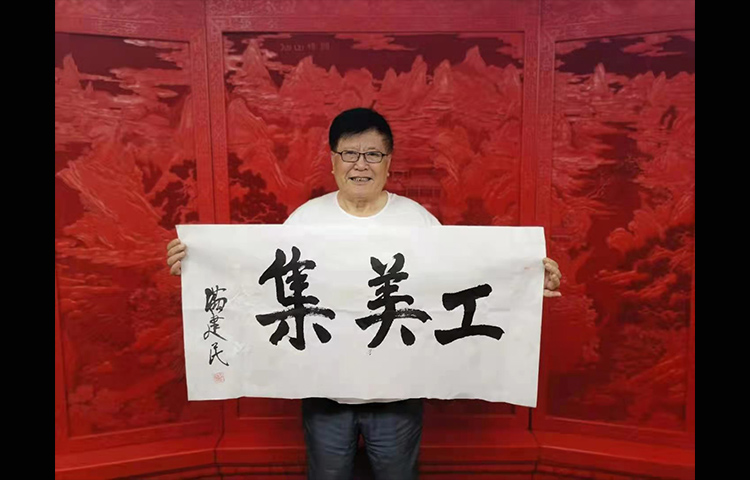 工美集
满建民